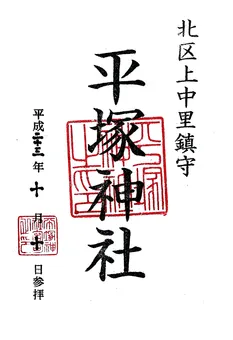 北区上中里鎮守
平塚神社
平成二十三年十月十日参拝